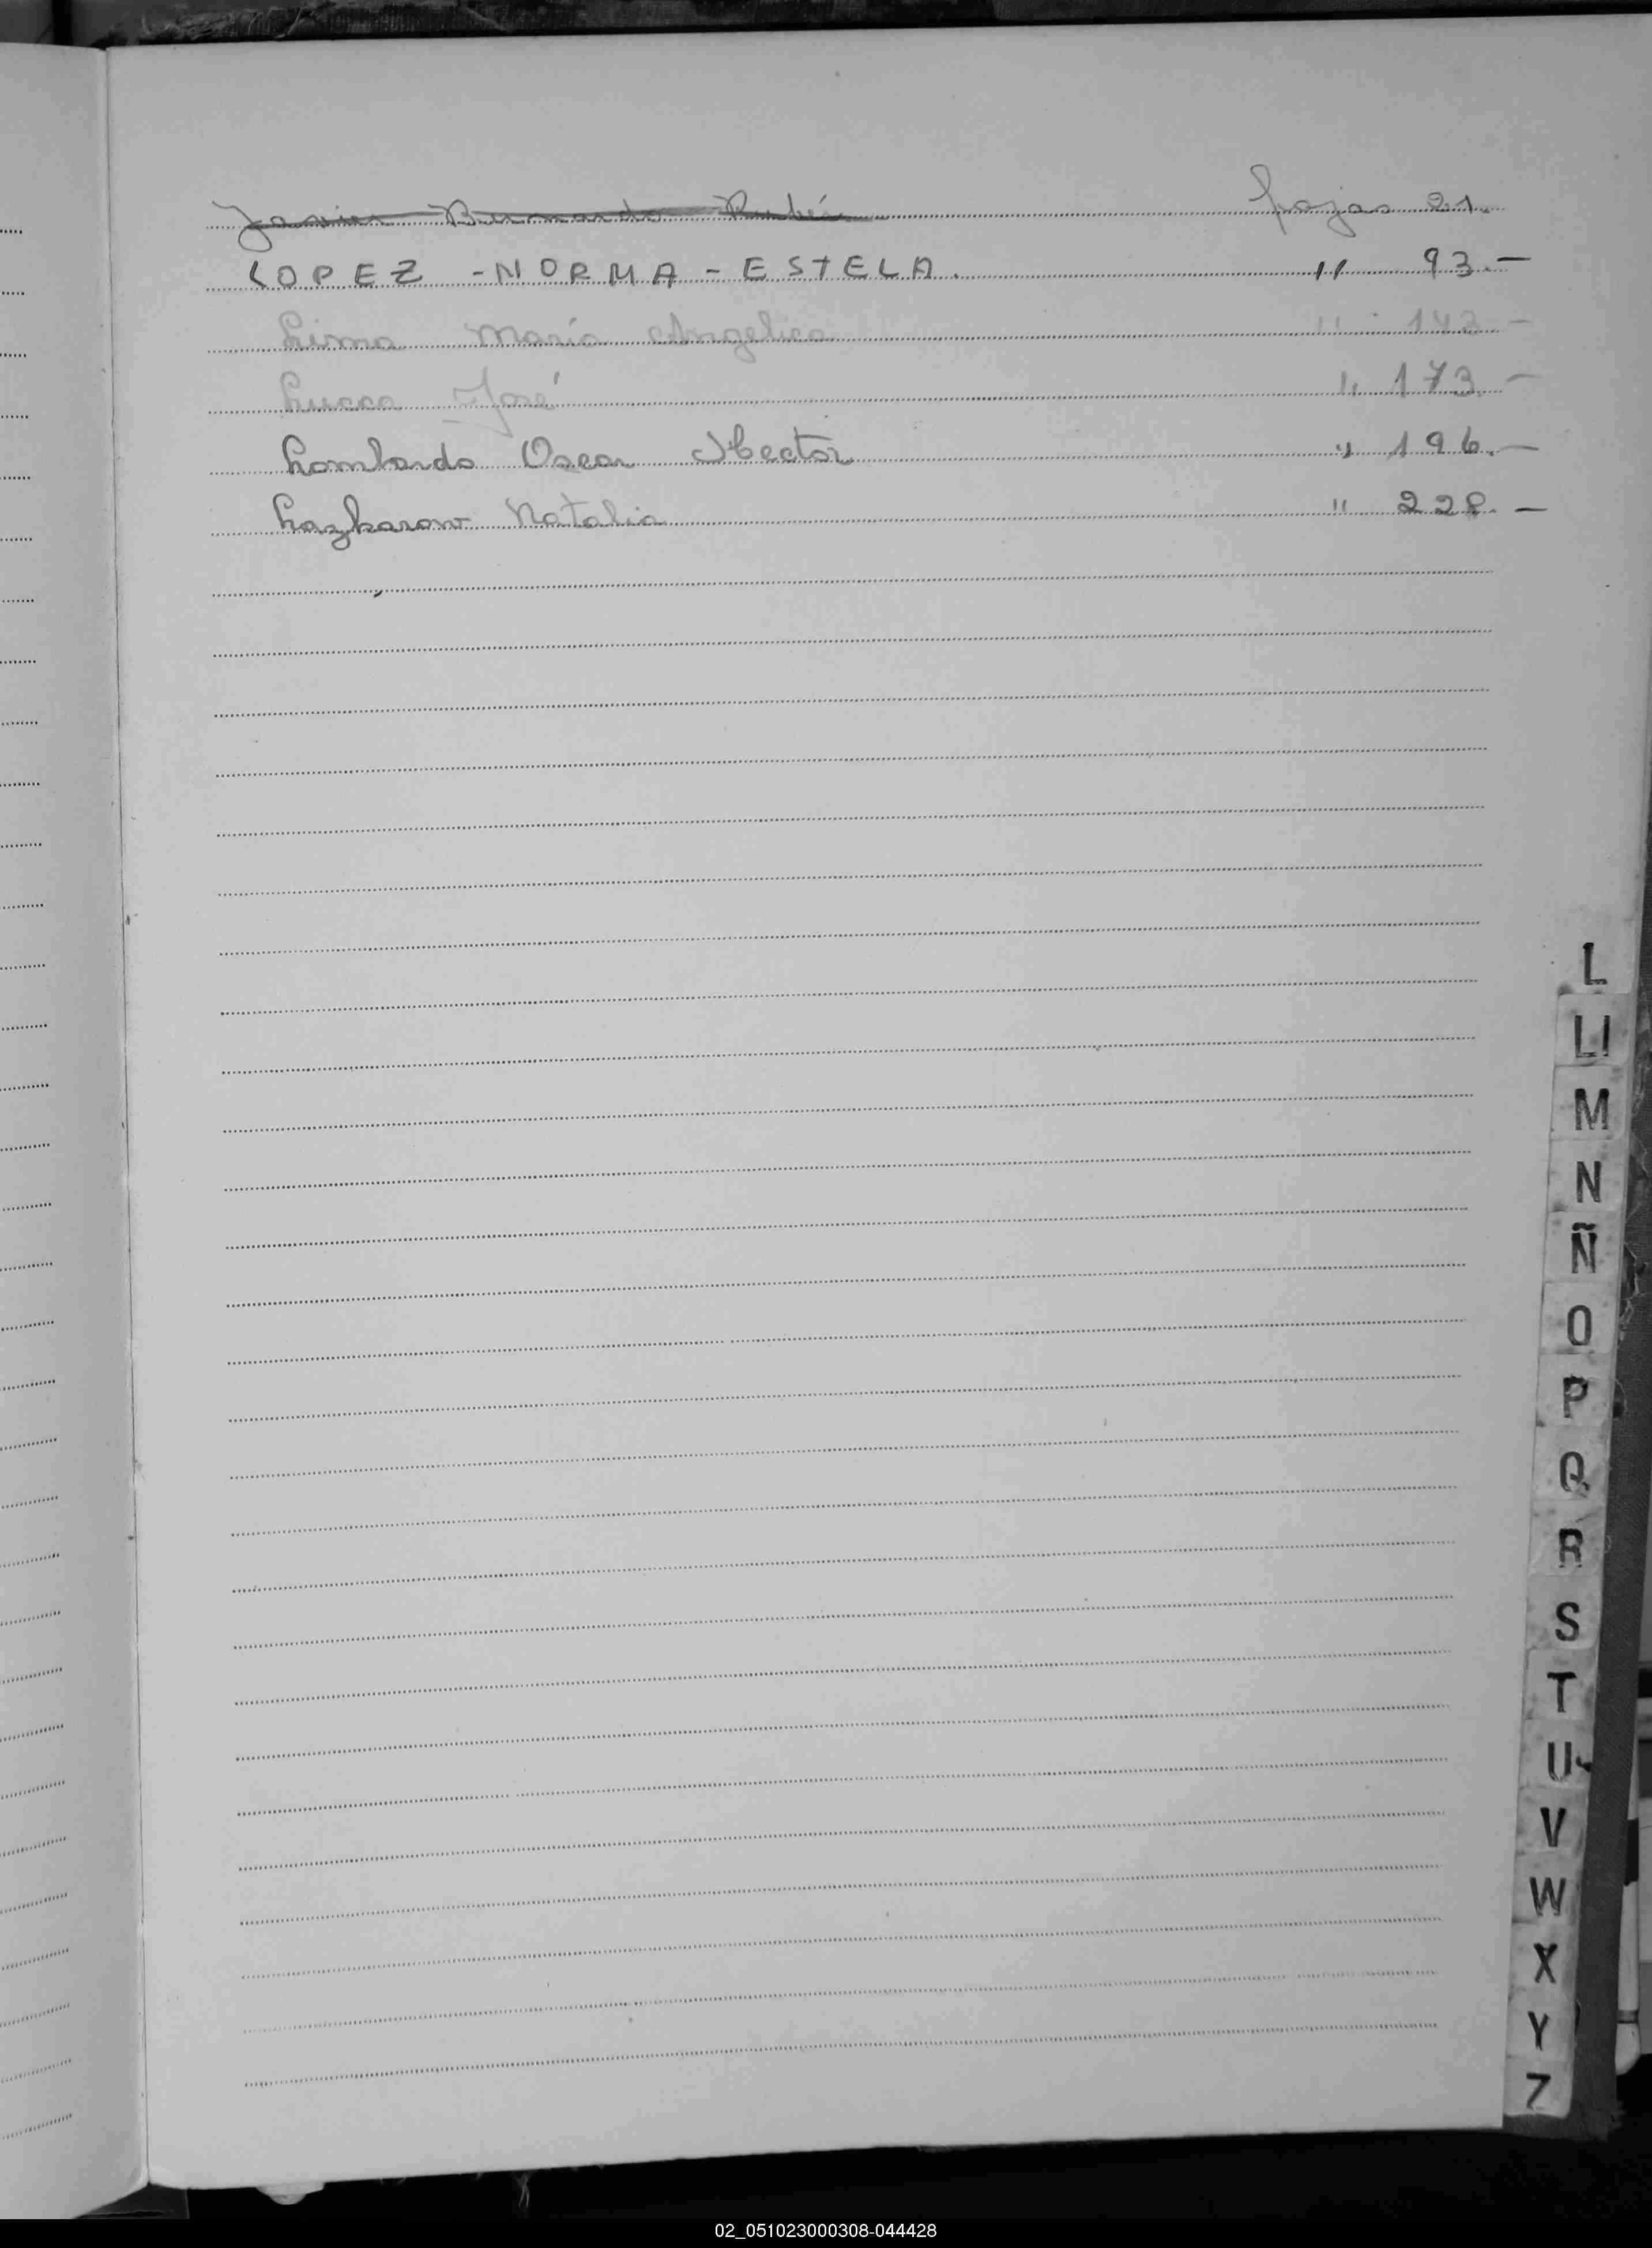 Javier Bernardo Rubén fojas 21.
LOPEZ - NORMA - ESTELA. " 93.-
Lima María Angelica " 143.-
Lucca José " 173.-
Lombardo Oscar Hector " 196.-
Lazkarow Natalia " 228.-
L
Ll
M
N
Ñ
O
P
Q
R
S
T
U
V
W
X
Y
Z
02_051023000308-044428